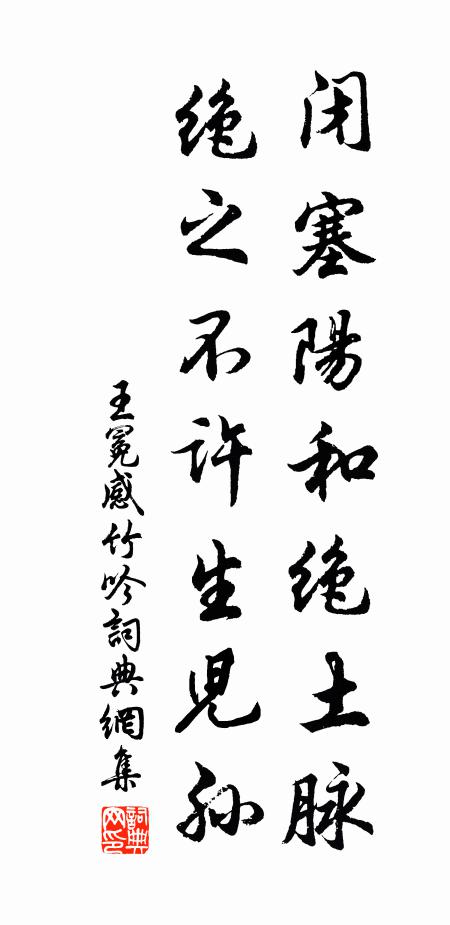 闭塞陽和绝土脉
绝之不许生児孙
王冕感竹吟詞典網集
詞典网印